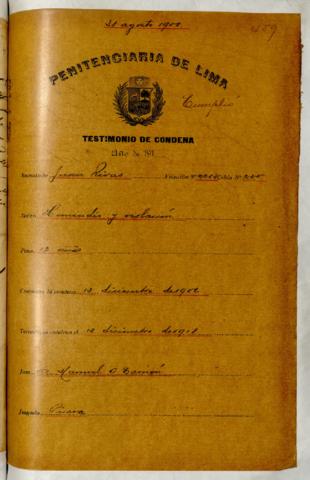 31 agosto 1908
459
PENITENCIARIA DE LIMA
Cumplió
TESTIMONIO DE CONDENA
Año de 191
Rematado Juan Rivas Filiación Nº Celda Nº 255
Delito Homicidio y violación
Pena 12 años
Comienza la condena 12 diciembre de 1906
Termina la condena el 12 diciembre de 1918
Juez Dr Manuel
Juzgado Piura